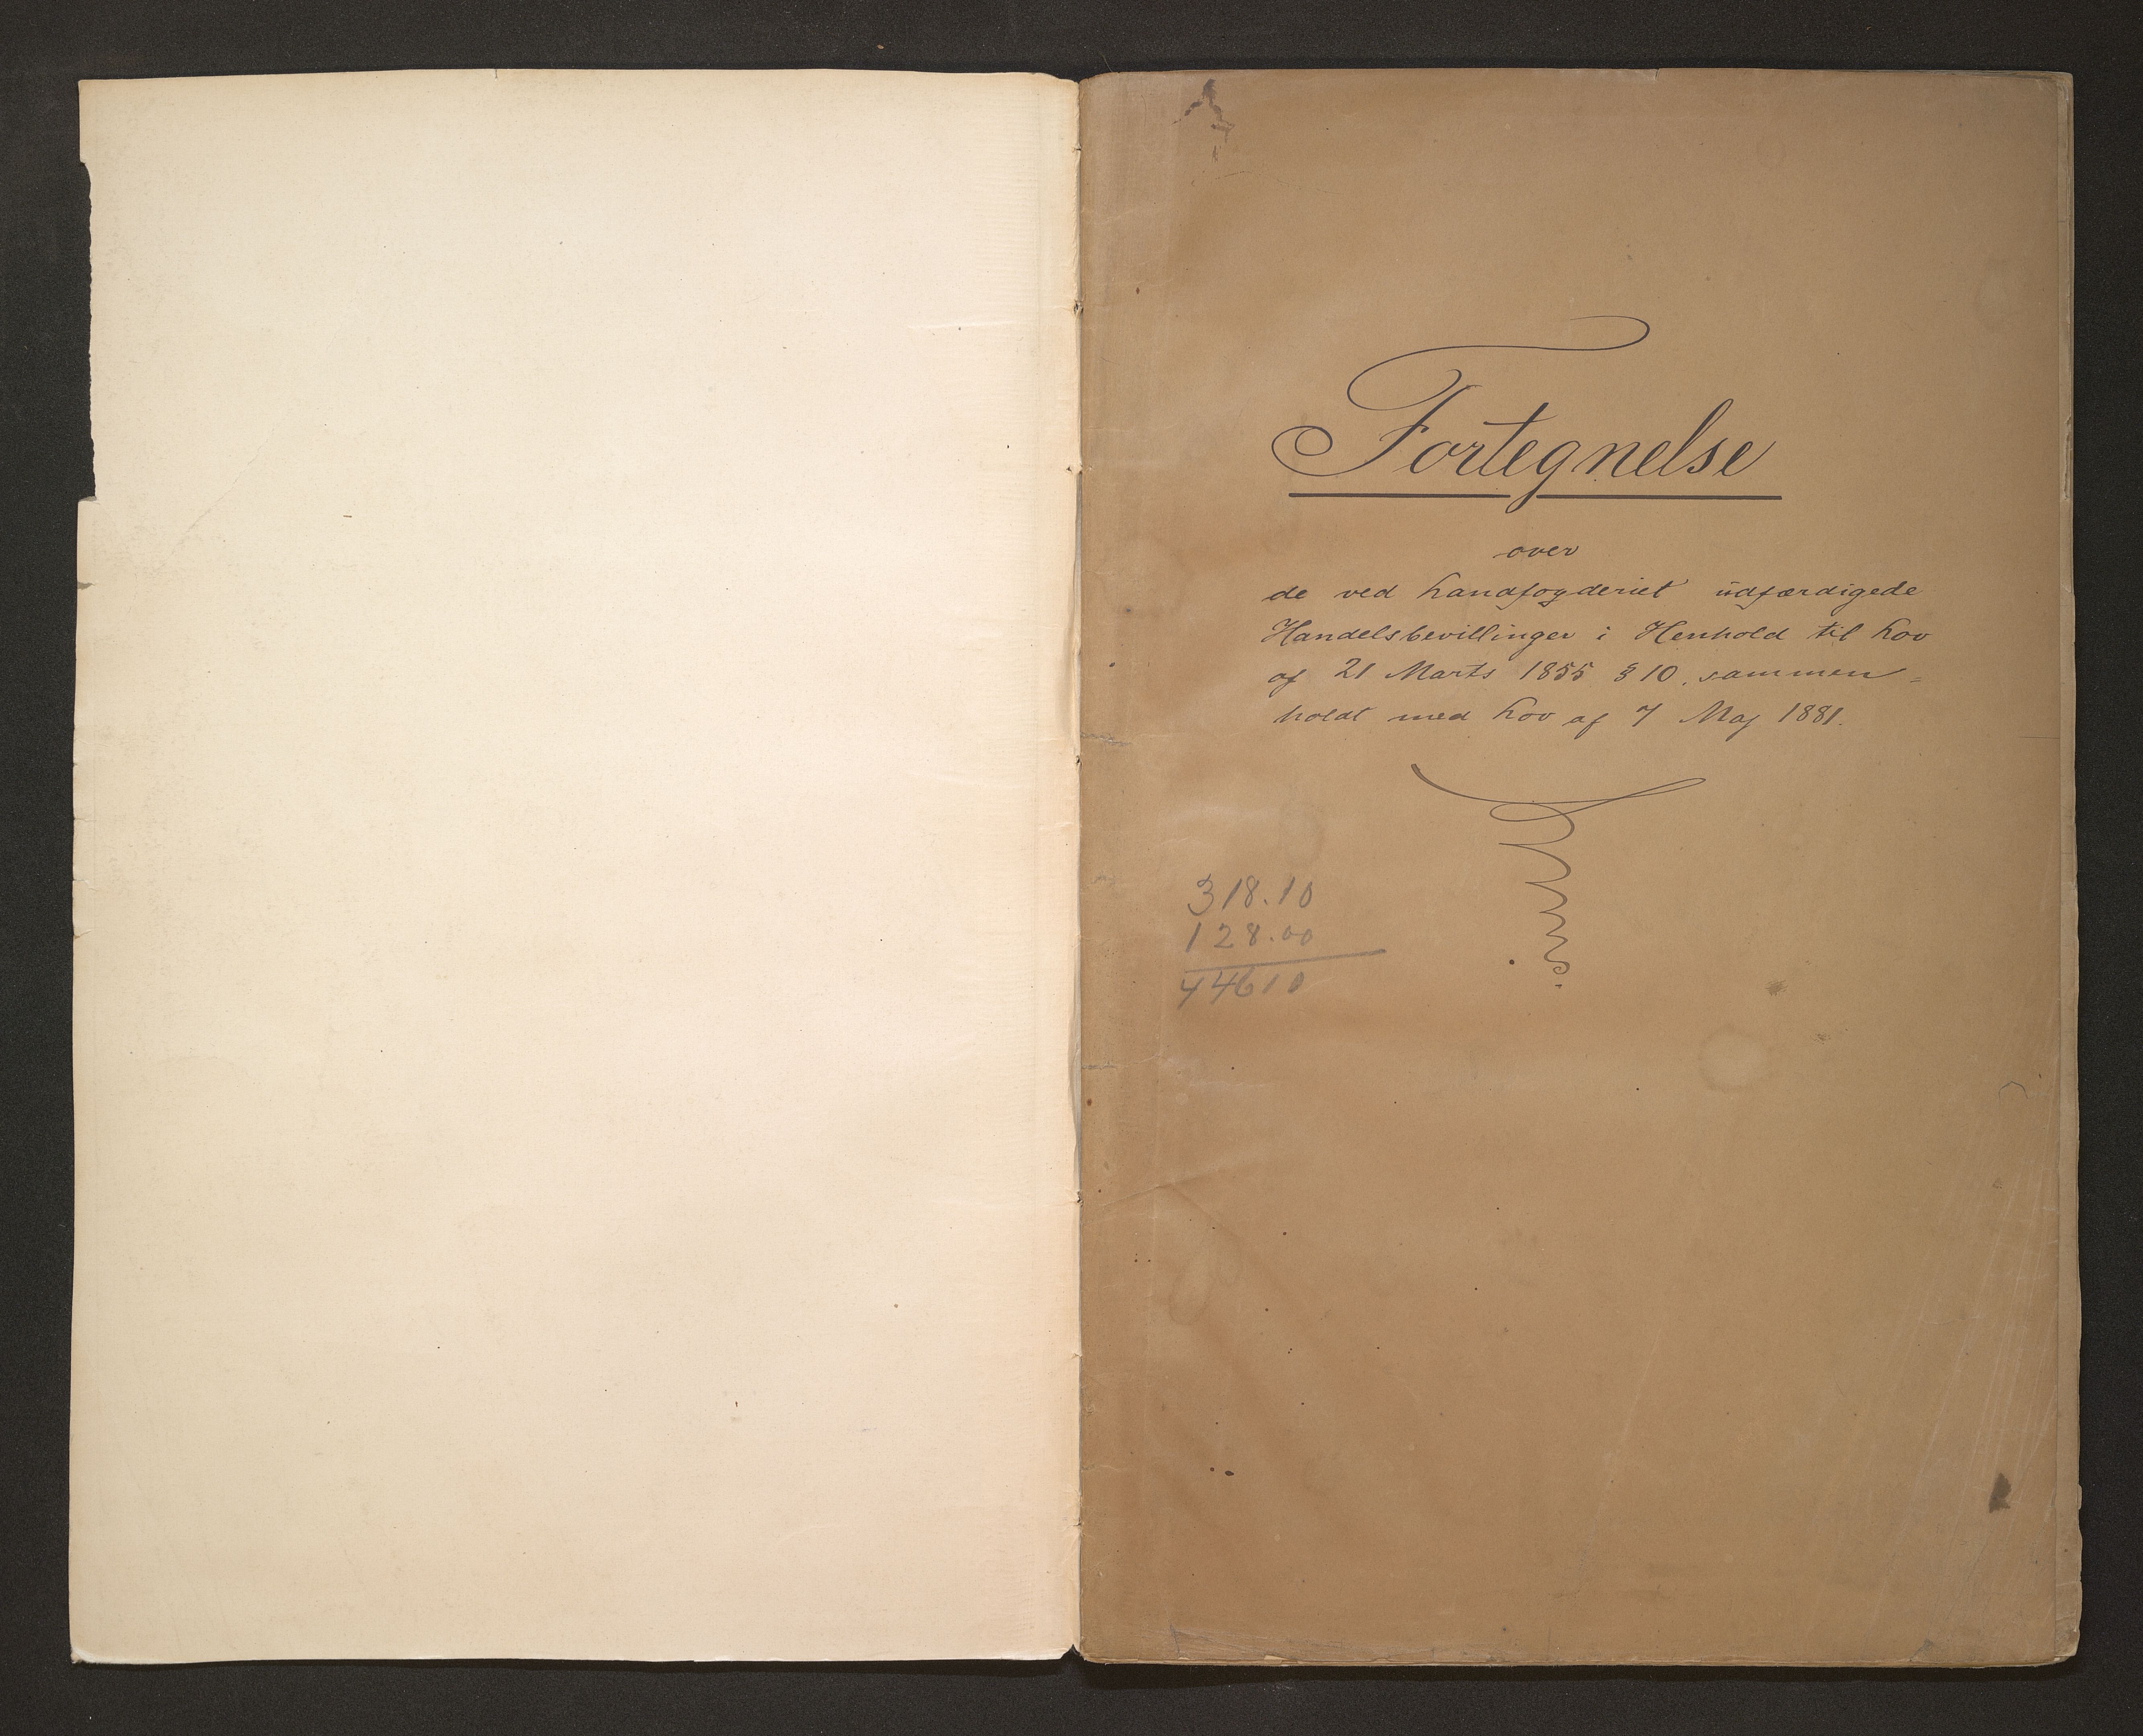 Fortegnelse
over
de ved Landfogderiet udfærdigede
Handelsbevillinger i Henhold til Lov
af 21 Marts 1855 § 10, sammen=
holdt med Lov af 7 Maj 1881.
318.10
128.00
44610